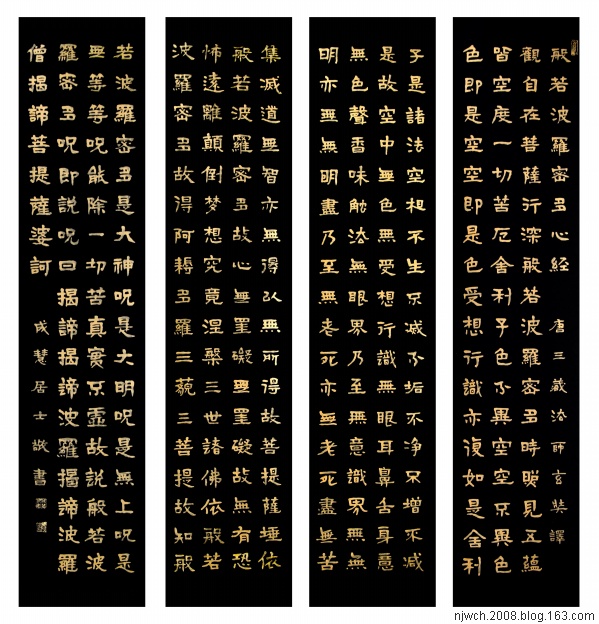 般若波羅密多心經 唐三藏法師玄奘譯
觀自在菩薩行深般若波羅密多時照見五蘊
皆空度一切苦厄舍利子色不異空空不異色
色即是空空即是色受想行識亦復如是舍利
子是諸法空相不生不滅不垢不淨不增不減
是故空中無色無受想行識無眼耳鼻舌身意
無色聲香味觸法無眼界乃至無意識界無無
明亦無無明盡乃至無老死亦無老死盡無苦
集滅道無智亦無得以無所得故菩提薩埵依
般若波羅密多故心無罣礙無罣礙故無有恐
怖遠離顛倒夢想究竟涅槃三世諸佛依般若
波羅密多故得阿耨多羅三藐三菩提故知般
若波羅密多是大神呪是大明呪是無上呪是
無等等呪能除一切苦真實不虛故說般若波
羅密多呪即說呪曰揭諦揭諦波羅揭諦波羅
僧揭諦菩提薩婆訶 成慧居士敬書
njwch.2008.blog.163.com